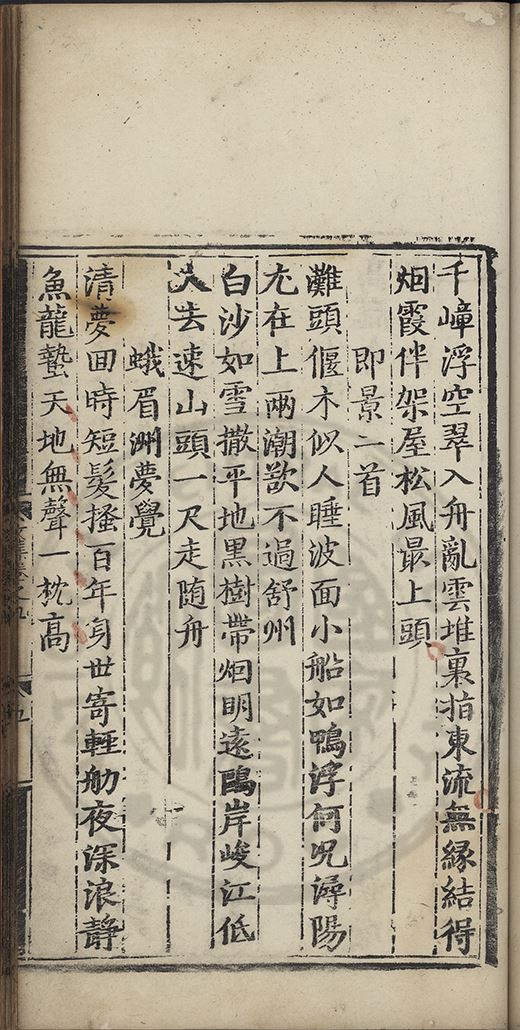 千嶂浮空翠入舟亂雲堆裏指東流無緣結得
烟霞伴架屋松風最上頭
即景二首
灘頭偃木似人睡波面小船如鴨浮何況潯陽
九在上兩潮欲不過舒州
白沙如雪撒平地黑樹帶烟明遠鷗岸峻江低
人去速山頭一尺走随舟
蛾眉洲夢覺
清夢回時短髮搔百年身世寄輕舠夜深浪靜
魚龍蟄天地無聲一枕高